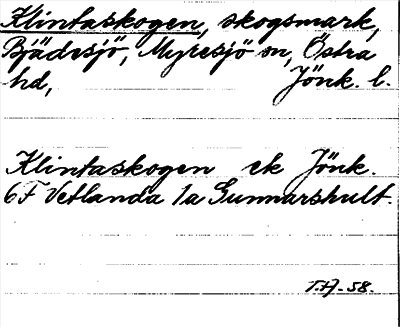 Klintaskogen, skogsmark,
Bjädesjö, Myresjö sn, Östra
hd, Jönk. l.
Klintaskogen ek Jönk.
6F Vetlanda 1a Gunnarshult.
T.H. -58.